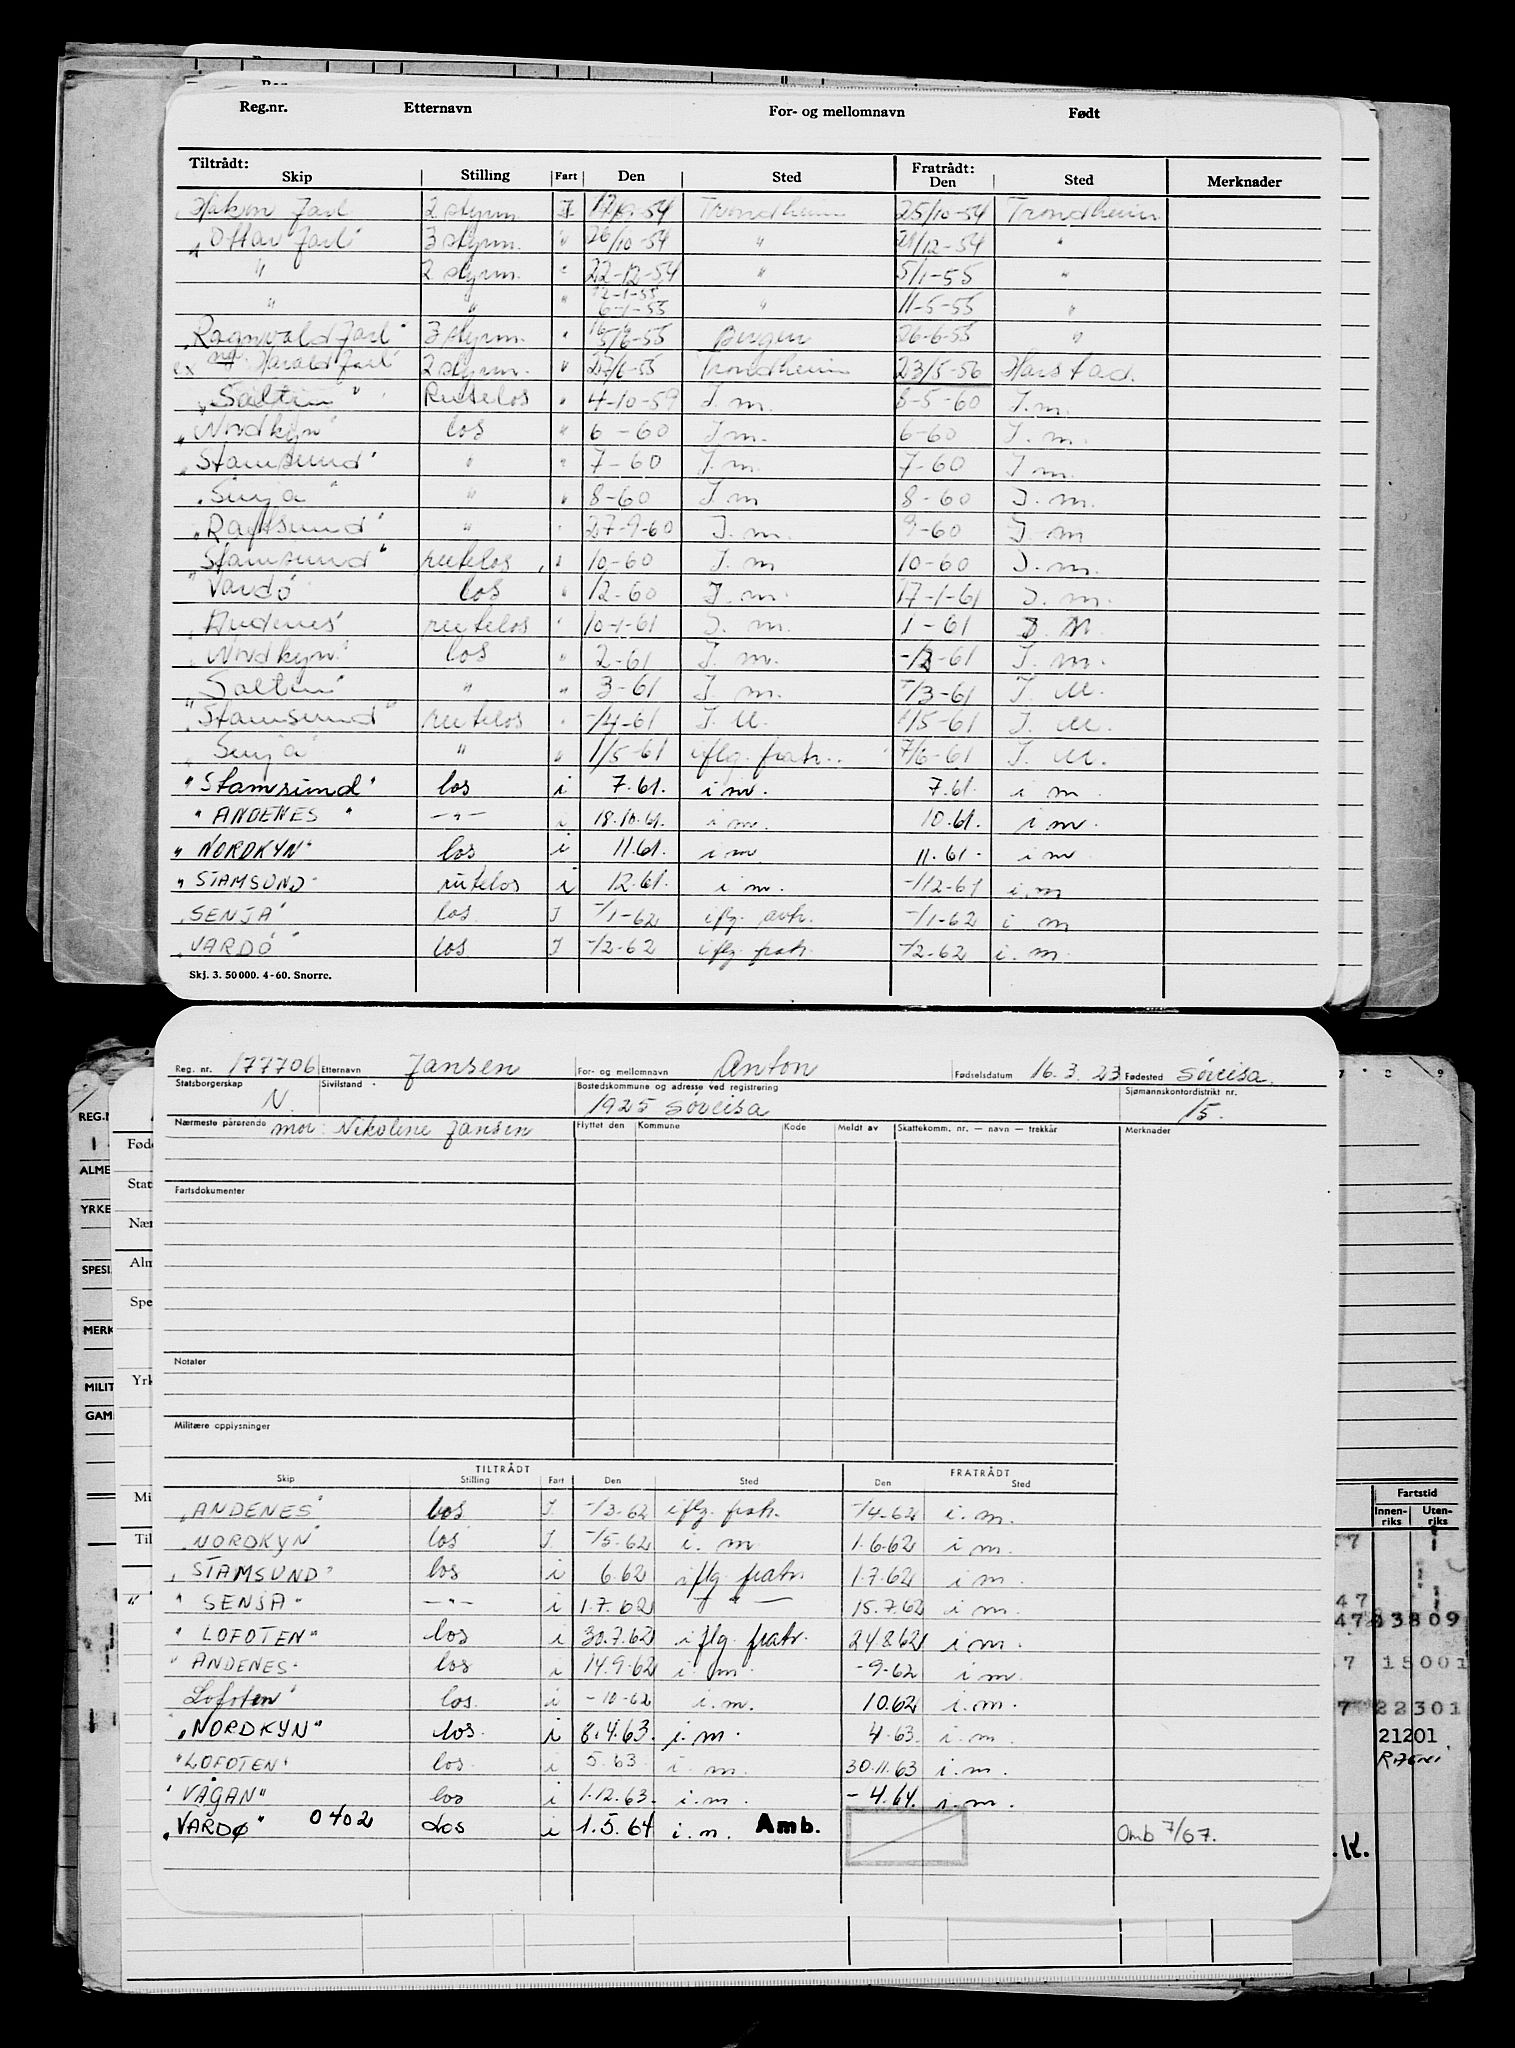 Reg.nr. Etternavn For- og mellomnavn Født
Tiltrådt: Fratrådt:
Skip Stilling Fart Den Sted Den Sted Merknader
Håkon Jarl 2 styrm. I -54 Trondheim 25/10-54 Trondheim
"Ottar Jarl" 3 styrm. " 26/10-54 " 21/12-54 "
" 2 styrm. " 22-12-54 " 5/1-55 "
" " " 12-1-55 6-1-55 " 11-5-55 "
"Ragnvald Jarl" 3 styrm. " Bergen 26-6-55 "
ex "Harald Jarl" 2 styrm. " 27/6-55 Trondheim 23/5-56 Harstad.
"Salten" Rutelos " 4-10-59 I. m. 8-5-60 I. m.
"Nordkyn" los " 6-60 I m. 6-60 I. m.
"Stamsund" " " 7-60 I. m. 7-60 I m.
"Senja" " " 8-60 I m 8-60 I. m.
"Raftsund" " " 27-9-60 I. m. 9-60 I m
"Stamsund" rutelos " 10-60 I. m 10-60 I. m.
"Vardø" los " 12-60 I. m. 17-1-61 I. m.
"Andenes" rutelos " 10-1-61 I. m. 1-61 I. M.
"Nordkyn" los " 2-61 I. m. -/2-61 I. m.
"Salten" " " 3-61 I. m. -/3-61 I. M.
"Stamsund" rutelos " -/4-61 I. M. 1/5-61 I. M.
"Senja" " " 1/5-61 iflg. fratr.. 7/6-61 I. M.
"Stamsund" los i 7.61. i m. 7.61. i m
"ANDENES" —"— i 18.10.61. i m. 10.61. i m.
"NORDKYN" los i 11.61. i m 11.61. i m
"STAMSUND" rutelos i 12.61. i m. -/12-61 i. m
"SENJA" los. I -/1-62 iflg. avtr. -/1-62 i m
"VARDØ" los I -/2-62 iflg. fratr. -/2-62 i. m.
Skj. 3. 50 000. 4-60. Snorre.
Reg. nr. 177706 Etternavn Jansen For- og mellomnavn Anton Fødselsdatum 16.3.23 Fødested Sørreisa.
Statsborgerskap N. Sivilstand Bostedskommune og adresse ved registrering 1925 Sørreisa Sjømannskontordistrikt nr. 15.
Nærmeste pårørende mor: Nikoline Jansen Flyttet den Kommune Kode Meldt av Skattekomm. nr. — navn — trekkår Merknader
Fartsdokumenter
Notater
Militære opplysninger
TILTRÅDT FRATRÅDT
Skip Stilling Fart Den Sted Den Sted
"ANDENES" los I -/3-62 iflg. fratr. -/4-62 i. m.
"NORDKYN" los I -/5-62 i. m 1.6.62 i m.
"STAMSUND" los i 6.62 iflg. fratr. 1.7.62 i m.
"SENJA" —"— i 1.7.62 —"— 15.7.62 i m.
"LOFOTEN" los i 30.7.62 iflg. fratr. 24.8.62 i m.
"ANDENES" los i 14.9.62 i. m. -9-62 i m.
Lofoten" los. i -10-62 i.m. 10.62 i.m.
"NORDKYN" los. i 8.4.63. i. m. 4.63. i. m.
"LOFOTEN" los. i 5.63. i m. 30.11.63 i.m.
"VÅGAN" los i 1.12.63. i.m. -4.64. i.m.
"VARDØ" 0402 Los i 1.5.64 i.m. Amb. Omb 7/67.
REG.N
ALME
YRKE
SPESI.
MERK
MILIT
GAM
Fød
Stat
Nær
Alm
Spe
Yrk
Mi
Til
7 8 9
Fartstid
Innen-riks Uten-riks
47
13809
15001
22301
21201
.K.